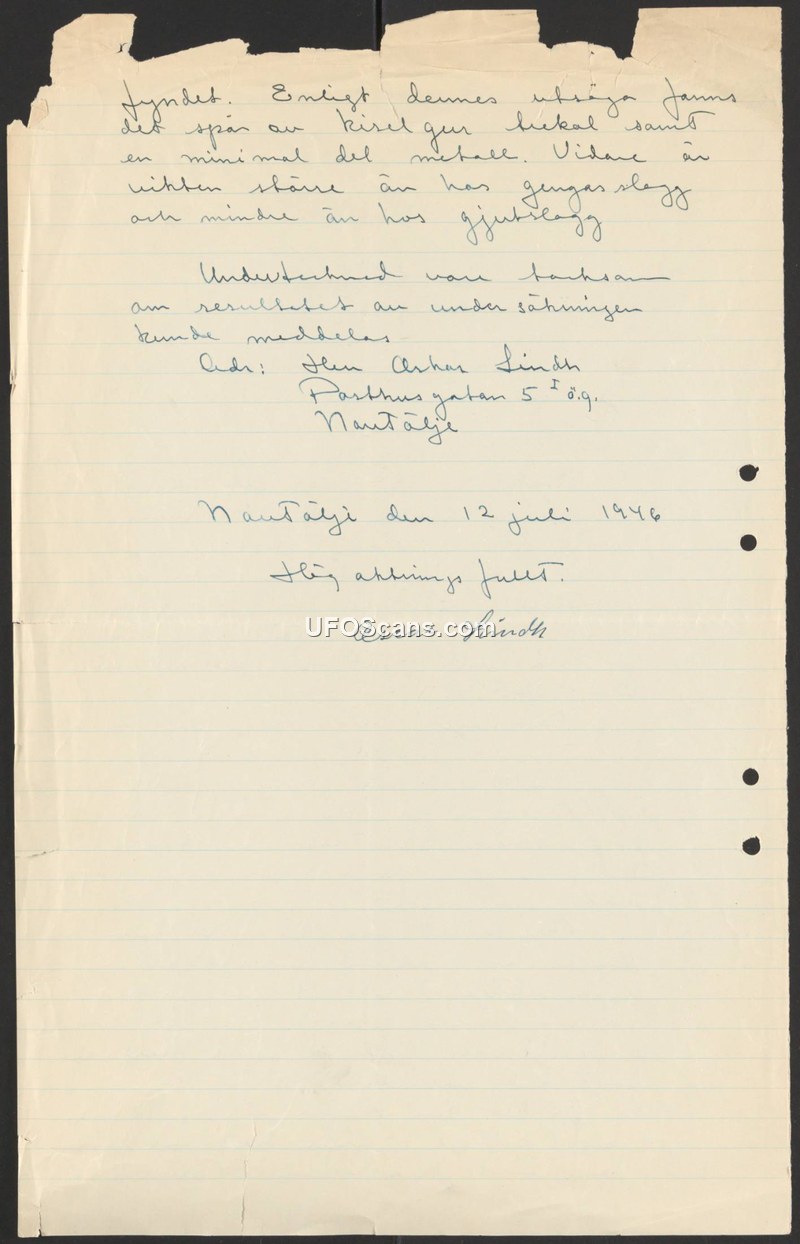 fyndet. Enligt dennes utsägo fanns
det spår av Kiselgur
samt
en minimal del metall. Vidare är
vikten större än hos gengasslagg
och mindre än hos gjutslagg
Undertecknad vore tacksam
om resultatet av undersökningen
kunde meddelas
Adr: Herr Oskar Lindh
Posthusgatan 5 I ö.g.
Norrtälje
Norrtälje den 12 juli 1946
Högaktningsfullt.
UFOScans.com
Lindh